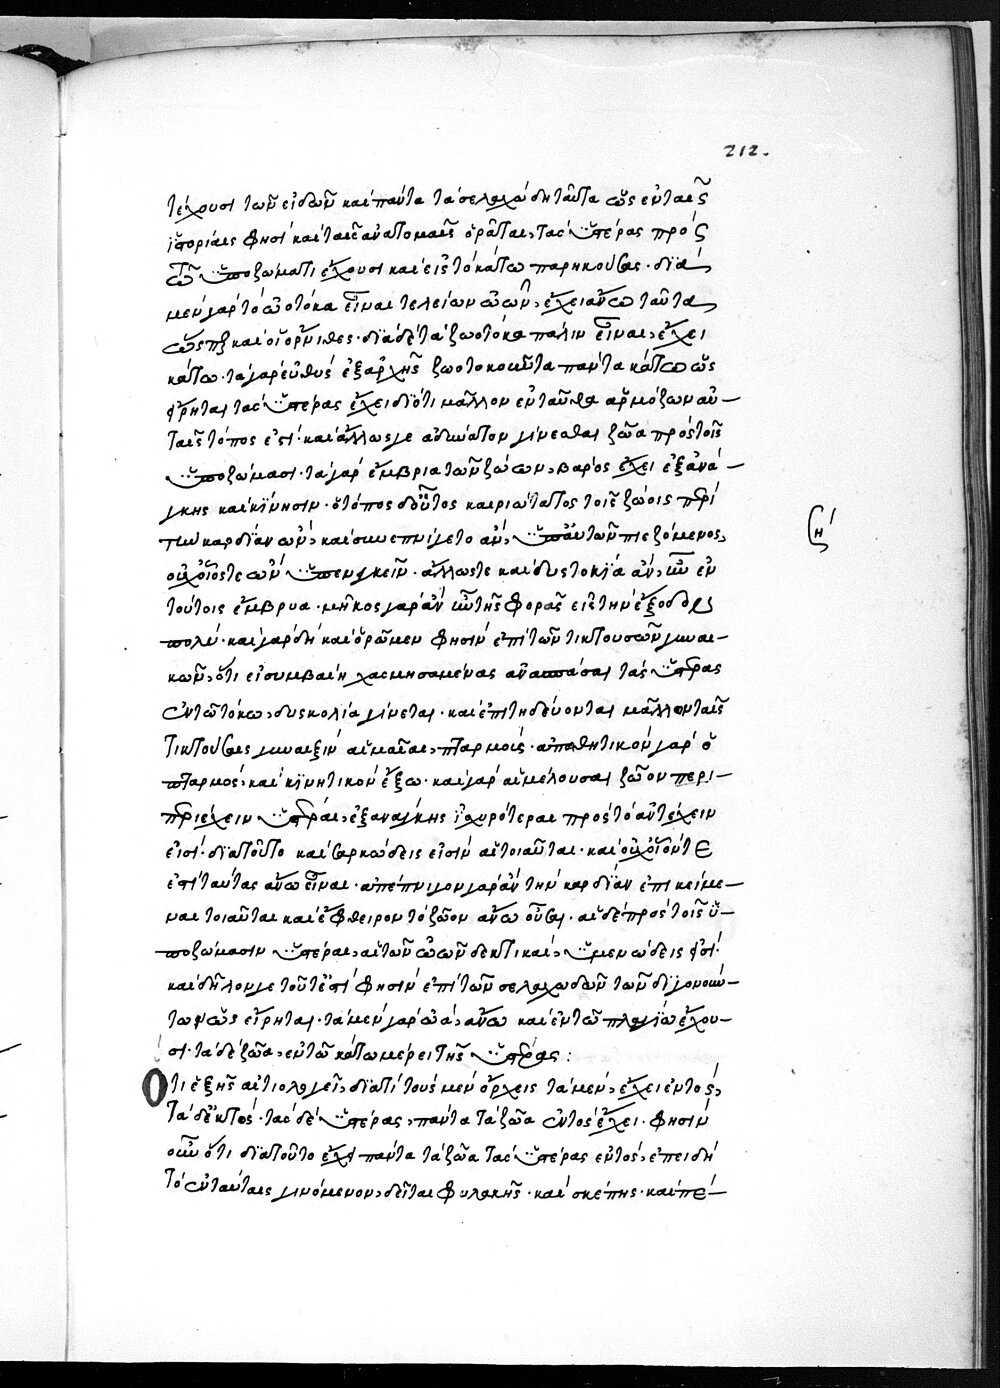 212.
τέχουσι τῶν εἰδῶν καὶ πάντα τὰ σελαχώδη ταῦτα ὡς ἐν ταῖς
ἱστορίαις φησὶ καὶ ταῖς ἀνατομαῖς ὁρᾶται, τὰς ὑστέρας πρὸς
τῶ ὑποζώματι ἔχουσι καὶ εἰς τὸ κάτω παρηκούσας· διὰ
μὲν γὰρ τὸ ὠοτόκα εἶναι τελείων ὠῶν, ἔχει ἄνω ταύτας
ὥσπερ καὶ οἱ ὄρνιθες· διὰ δὲ τὰ ζωοτόκα πάλιν εἶναι, ἔχει
κάτω· τὰ γὰρ εὐθὺς ἐξαρχῆς ζωοτοκοῦντα πάντα κάτω ὡς
εἴρηται τὰς ὑστέρας ἔχει διότι μᾶλλον ἐνταῦθα ἁρμόζων αὐ-
ταῖς τόπος ἐστί· καὶ ἄλλως γε ἀδύνατον γίνεσθαι ζῶα πρὸς τοῖς
ὑποζώμασι· τὰ γὰρ ἔμβρια τῶν ζώων, βάρος ἔχει ἐξ ἀνά-
γκης καὶ κίνησιν· ὁ τόπος δ' οὗτος καιριώτατος τοῖς ζώοις περὶ
τὴν καρδίαν ὤν, καὶ συνεπνίγετο ἂν, ὑπ' αὐτῶν πιεζόμενος,
οὐχ οἷός τε ὢν ὑπενεγκεῖν· ἄλλως τε καὶ δυστοκία ἂν ἦν ἐν
τούτοις ἔμβρυα· μῆκος γὰρ ἂν ἦν τῆς φορᾶς εἰς τὴν ἔξοδον
πολύ· καὶ γὰρ δὴ καὶ ὁρῶμεν φησὶν ἐπὶ τῶν τικτουσῶν γυναι-
κῶν, ὅτι εἰ συμβαίη χασμησαμένας ἀνασπάσαι τὰς ὑστέρας
ἐν τῶ τόκω, δυσκολία γίνεται· καὶ ἐπιτηδεύονται μᾶλλον ταῖς
τικτούσαις γυναιξὶν αἱ μαῖαι, πταρμοῖς· ἀπωθητικὸν γὰρ ὁ
πταρμὸς, καὶ κινητικὸν ἔξω· καὶ γὰρ αἱ μέλουσαι ζῶον περι-
περιέχειν ὑστέραι, ἐξανάγκης ἰσχυρότεραι πρὸς τὸ ἀντέχειν
εἰσί· διὰ τοῦτο καὶ σαρκώδεις εἰσὶν αἱ τοιαῦται· καὶ οὐχ οἷόν τε
ἐστὶ ταύτας ἄνω εἶναι· ἀπέπνιγον γὰρ ἂν τὴν καρδίαν ἐπικείμε-
ναι τοιαῦται καὶ ἔφθειρον τὸ ζῶον ἄνω οὖσαι· αἱ δὲ πρὸς τοῖς ὑ-
ποζώμασιν ὑστέραι, αἱ τῶν ὠῶν δεκτικαί, ὑμενώδεις εἰσί·
καὶ δῆλον γε τοῦτ' ἐστὶ φησὶν ἐπὶ τῶν σελαχωδῶν τῶν διγονούν-
των ὡς εἴρηται· τὰ μὲν γὰρ ὠά, ἄνω καὶ ἐν τῶ πλαγίω ἔχου-
σι· τὰ δὲ ζῶα, ἐν τῶ κάτω μέρει τῆς ὑστέρας:
Ὅτι ἑξῆς αἰτιολογεῖ, διατί τοὺς μὲν ὄρχεις τὰ μὲν, ἔχει ἐντός,
τὰ δ' ἐκτός· τὰς δὲ ὑστέρας, πάντα τὰ ζῶα ἐντὸς ἔχει· φησὶν
οὖν ὅτι διὰ τοῦτο ἔχει πάντα τὰ ζῶα τὰς ὑστέρας ἐντός, ἐπειδὴ
τὸ ἐν ταύταις γινόμενον, δεῖται φυλακῆς· καὶ σκέπης· καὶ πέ-